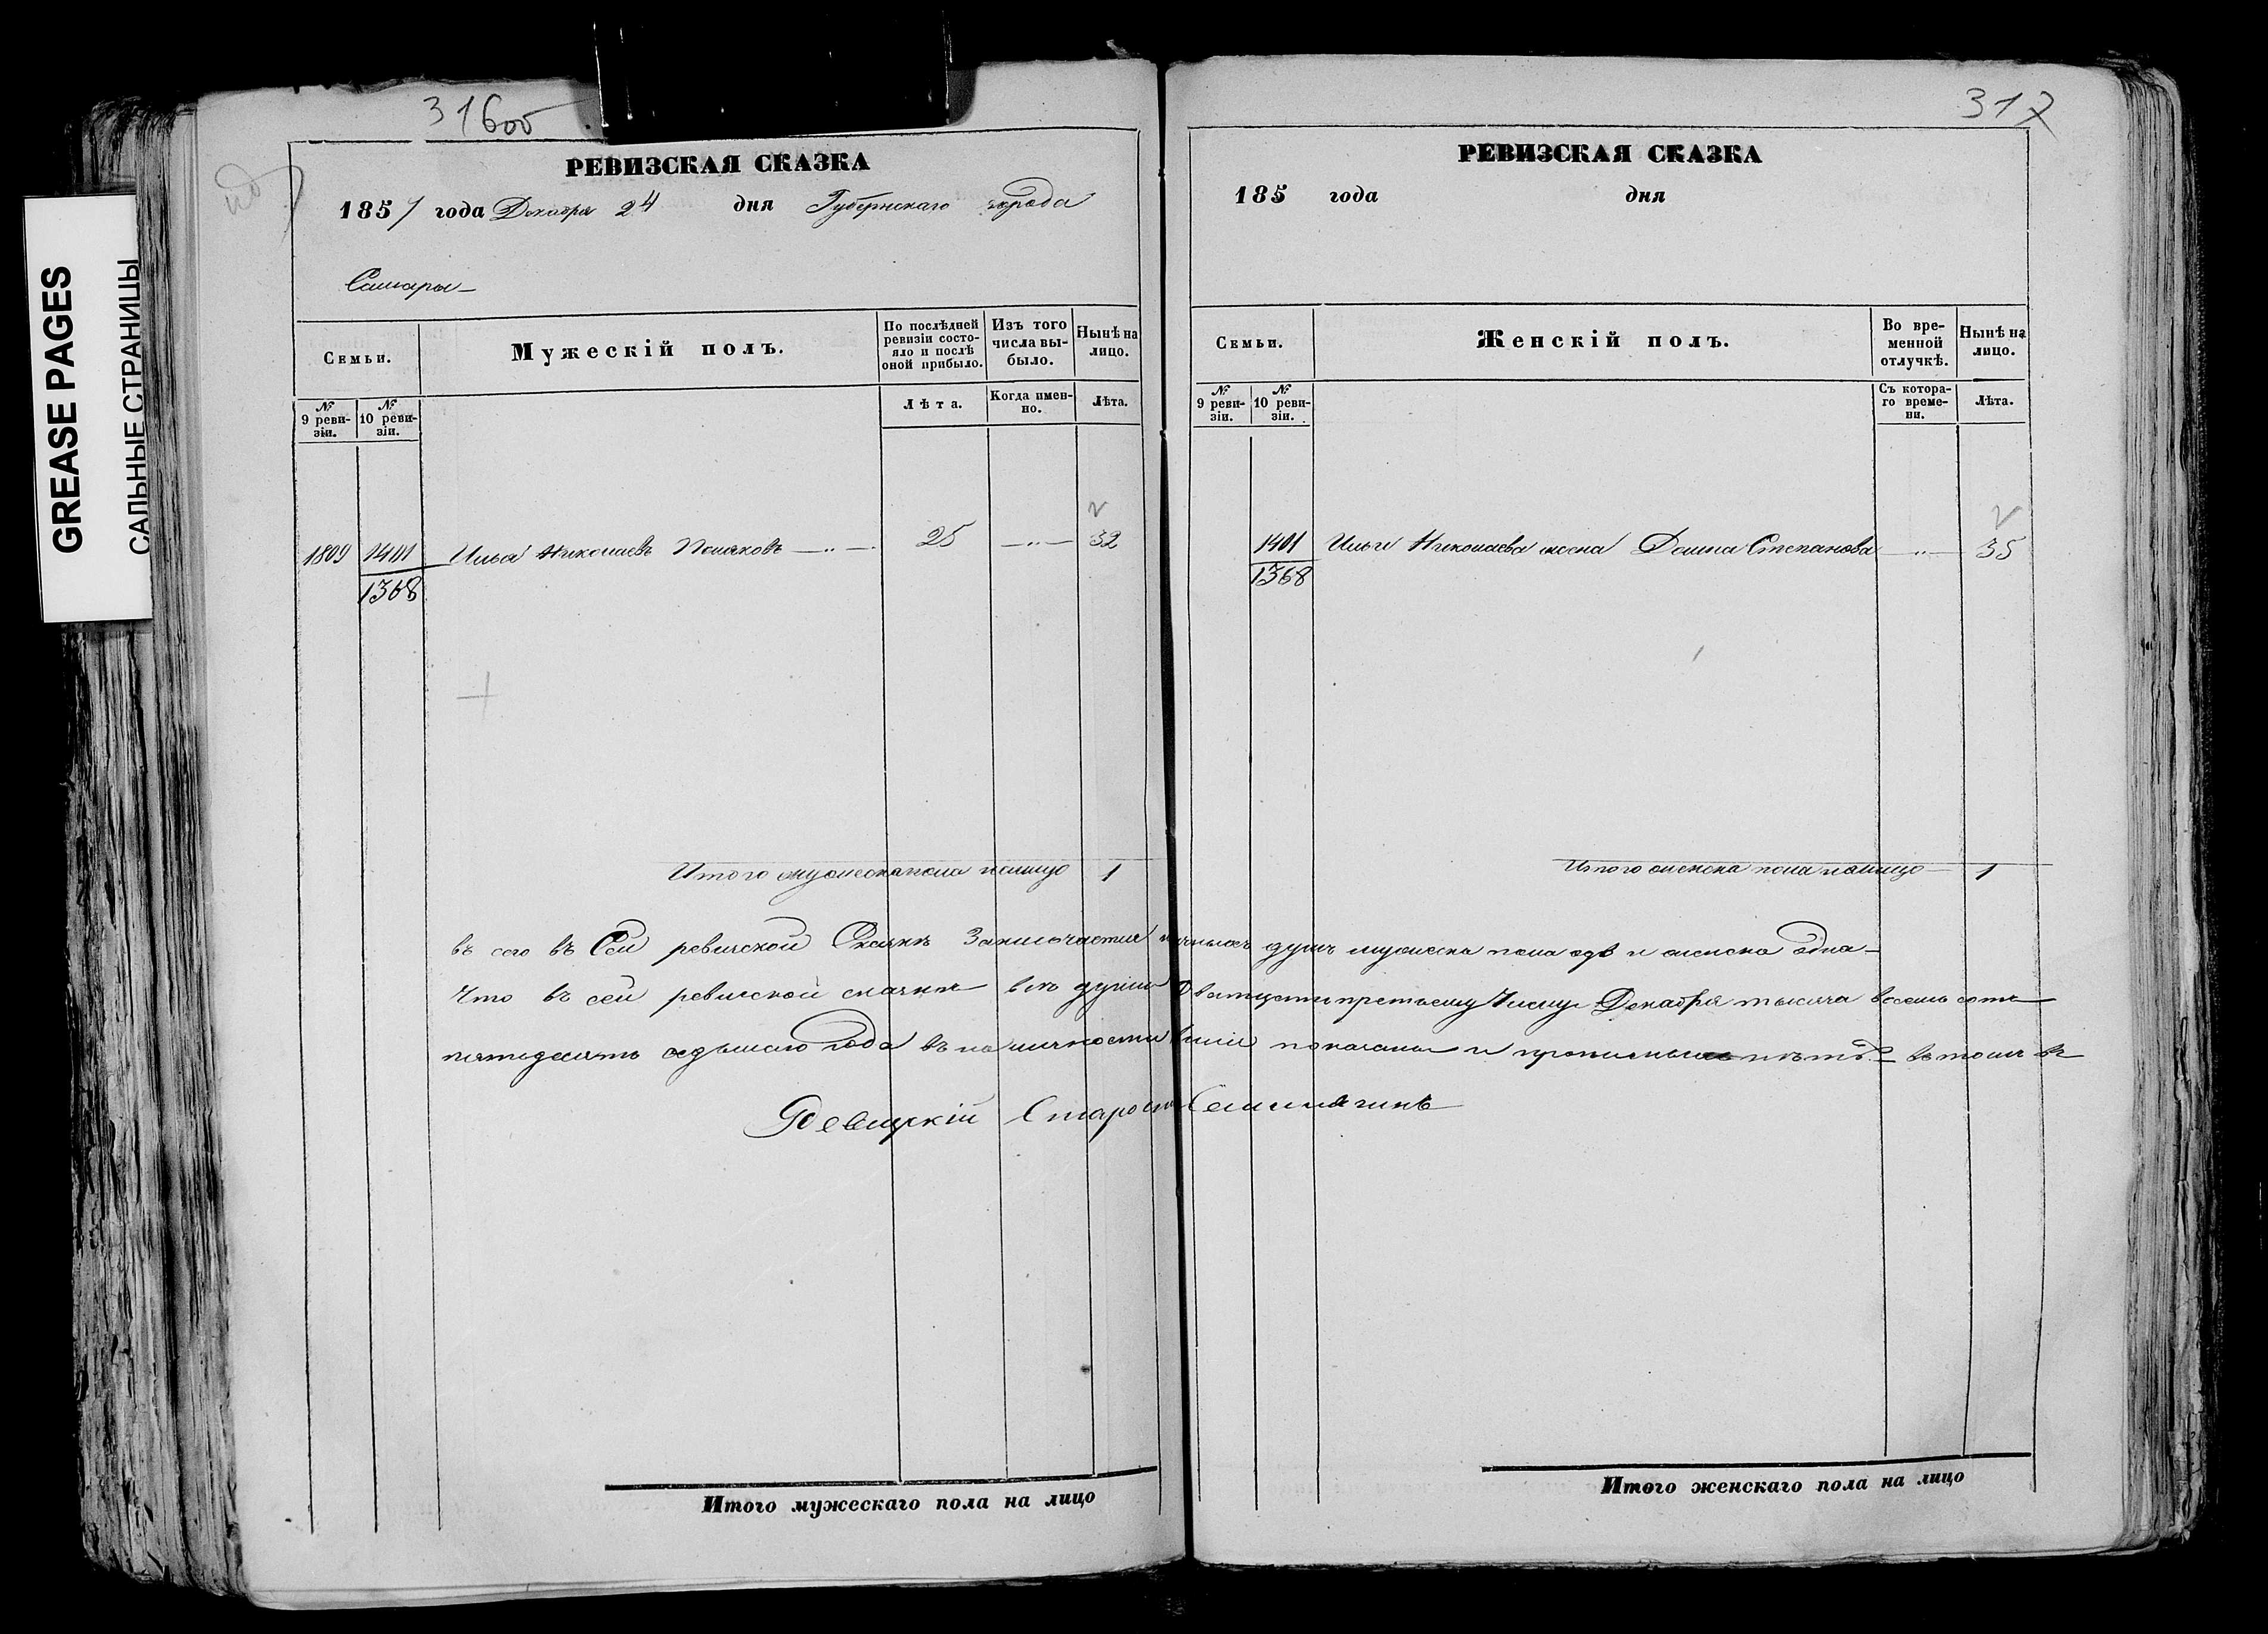 316об
РЕВИЗСКАЯ СКАЗКА
1857 года Декабря 24 дня Губернскаго города
Самары
Семьи.
Мужескій полъ.
По послѣдней ревизіи состояло и послѣ оной прибыло.
Изъ того числа выбыло.
Нынѣ на лицо.
№ 9 ревизіи.
№ 10 ревизіи.
Лѣта.
Когда именно.
Лѣта.
1809 1401 Илья Николаевъ Поляковъ 25 32
1368
Итого мужеска пола налицо 1
317
РЕВИЗСКАЯ СКАЗКА
185 года дня
Семьи.
Женскій полъ.
Во временной отлучкѣ.
Нынѣ на лицо.
№ 9 ревизіи.
№ 10 ревизіи.
Съ котораго времени.
Лѣта.
1401 Ильи Николаева жена Домна Степанова 35
1368
Итого женска пола налицо 1
въ сей ревизской Сказкѣ Заключается душъ мужеска пола и женска одна
Что въ сей ревизской сказкѣ всѣ души Двадцати третьему Числу Декабря тысяча восемь сотъ
пятьдесятъ седьмаго года въ наличности показаны и въ томъ
Ревизкій Староста
Итого мужескаго пола на лицо
Итого женскаго пола на лицо
GREASE PAGES
САЛЬНЫЕ СТРАНИЦЫ